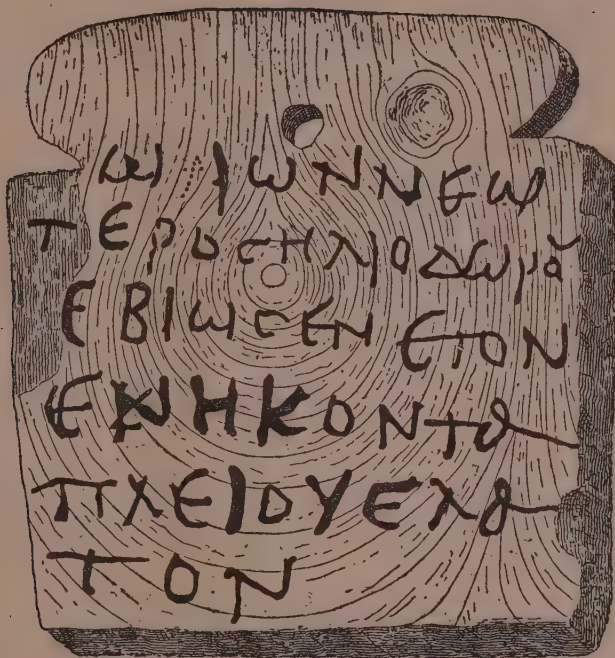 ωριων νεω
τεροσ ηλιοδωρου
εβιωσεν ετον
εξηκοντα
πλειου ελα
τον